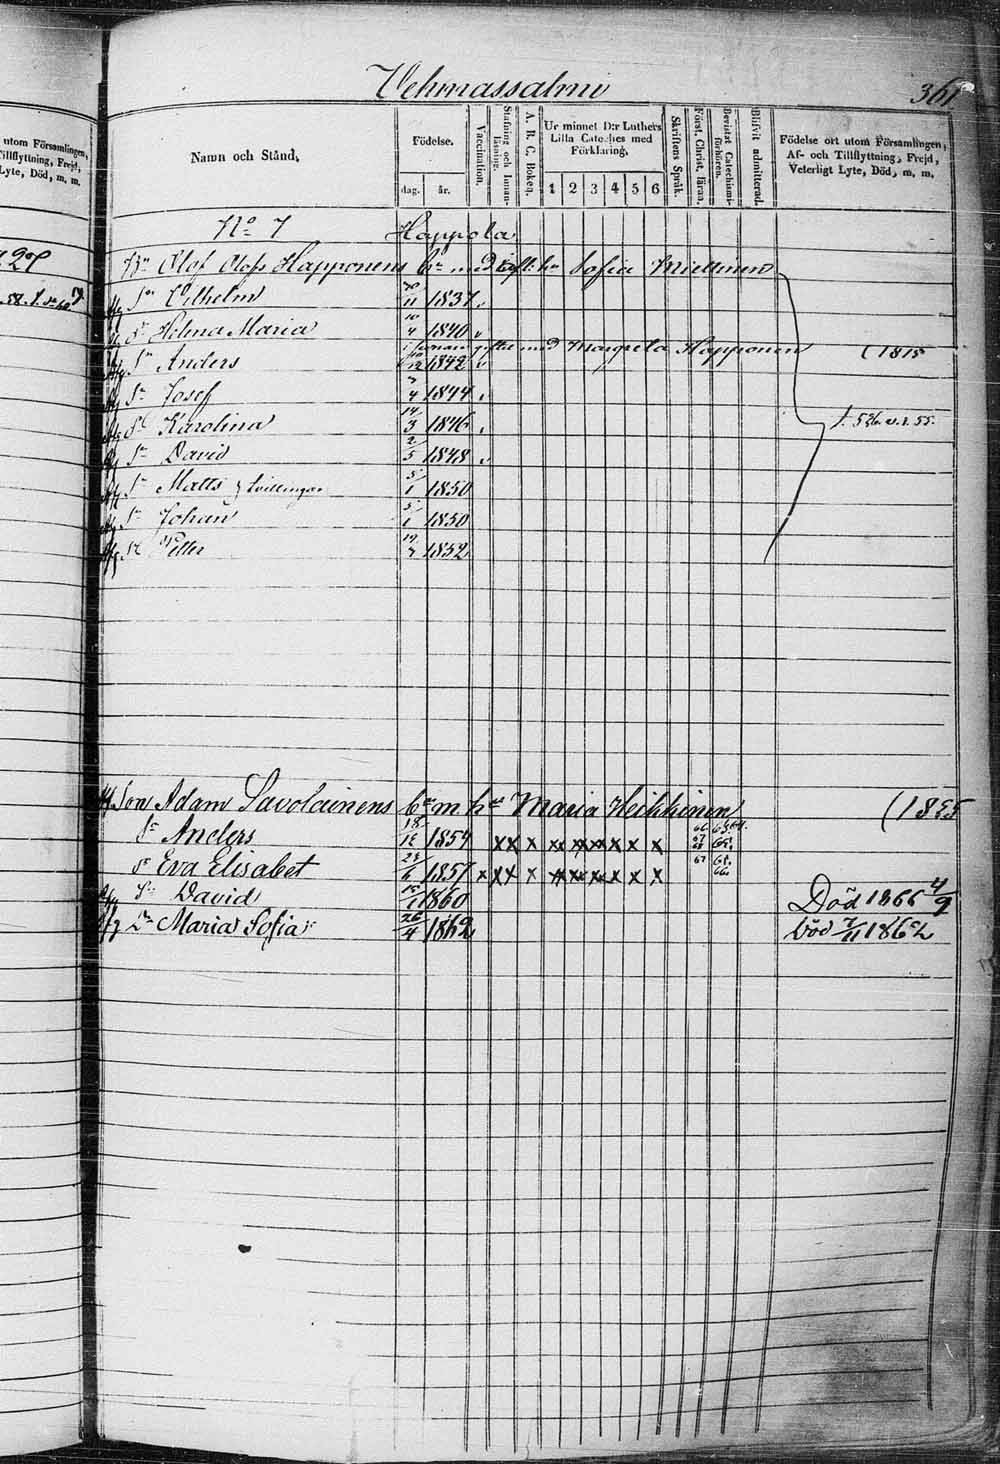 Vehmassalmi
361
utom Församlingen,
Tillflyttning, Frejd,
Lyte, Död, m. m.
Namn och Stånd,
Födelse.
dag. år.
Vaccination.
Stafning och Innan-
läsning.
A. B. C. Boken.
Ur minnet D:r Luthers
Lilla Cateches med
Förklaring,
1 2 3 4 5 6
Skriftens Språk.
Först. Christ. läran.
Bevistat Catechismi-
förhören.
Blifvit admitterad.
Födelse ort utom Församlingen,
Af- och Tillflyttning, Frejd,
Veterligt Lyte, Död, m. m.
No 7 Happola
Olof Olofs Happonens med Sofia Miettinen
Sn Vilhelm 11 1837
Helena Maria 10/4 1840
gifta med Margreta Happonen (1815
Sn Anders 12 1842
Sn Josef 4 1844
Karolina 14/3 1846
Sn David 2/5 1848
Sn Matts } tvillingar 5/1 1850
Sn Johan 5/1 1850
Petter 19/7 1852
Son Adam Savolainens bn m. hu Maria Heikkinen (1835
Sn Anders 18/12 1854 x x x x x x x x x
Eva Elisabet 1857 x x x x x x x x x x
Sn David 1860 Död 1866 4/9
Dr Maria Sofia 26/4 1862 Död 7/11 1862